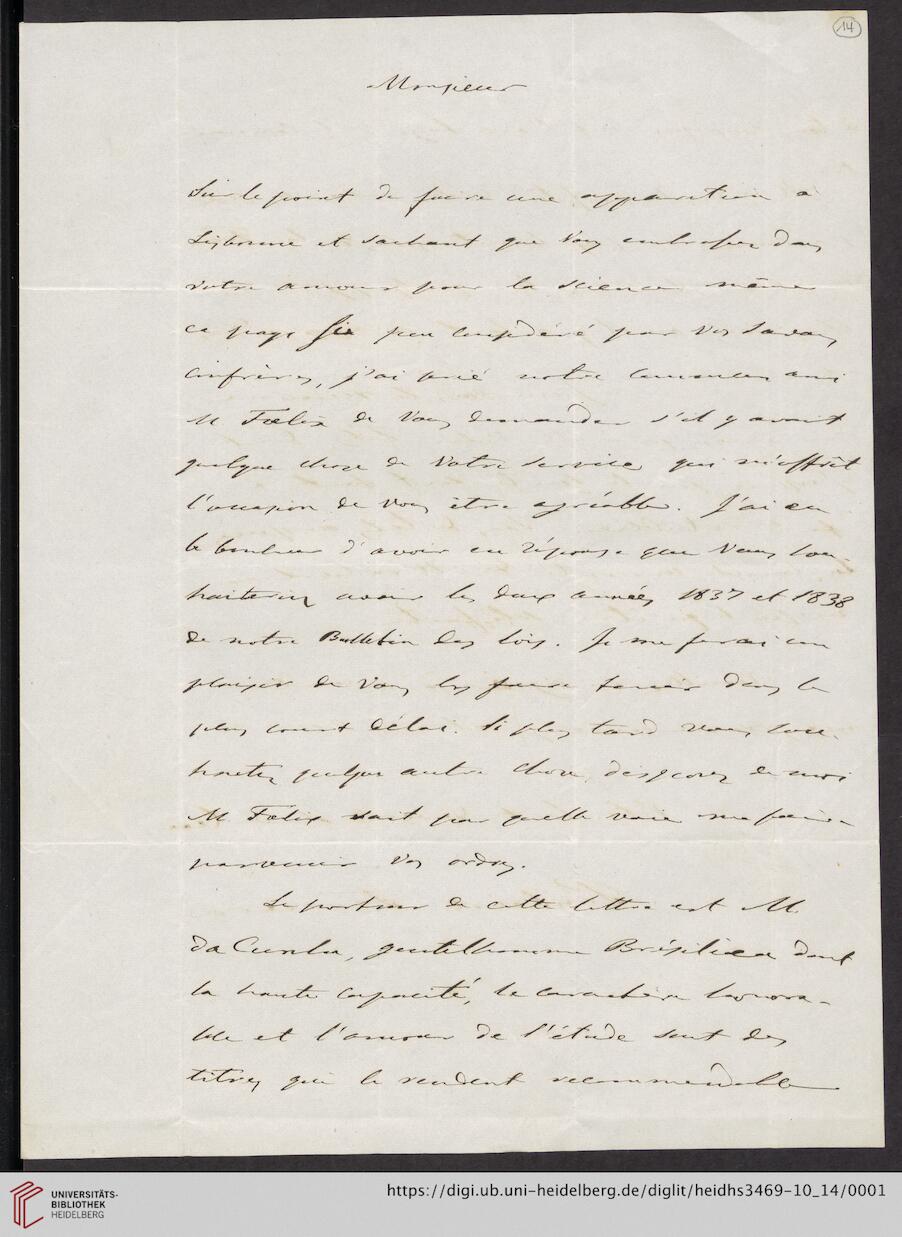 14
Monsieur
Sur le point de faire une apparition à
Lisbonne et sachant que Vous embrassez dans
votre amour pour la science même
ce pays si peu considéré par Vos Savans
confrères, j'ai prié notre commun ami
M Fœlix de Vous demander s'il y avait
quelque chose de Votre service qui m'offrît
l'occasion de Vous être agréable. J'ai eu
le bonheur d'avoir en réponse que Vous sou-
haiteriez avoir les deux années 1837 et 1838
de notre Bulletin des lois. Je me ferai un
plaisir de Vous les faire tenir dans le
plus court délai. Si plus tard Vous sou-
haitez quelque autre chose, disposez de moi
M. Fœlix sait par quelle voie me faire
parvenir Vos ordres.
Le porteur de cette lettre est M.
da Cunha, gentilhomme Brésilien dont
la haute capacité, le caractère honora-
ble et l'amour de l'étude sont des
titres qui le rendent recommendable
UNIVERSITÄTS-
BIBLIOTHEK
HEIDELBERG
https://digi.ub.uni-heidelberg.de/diglit/heidhs3469-10_14/0001